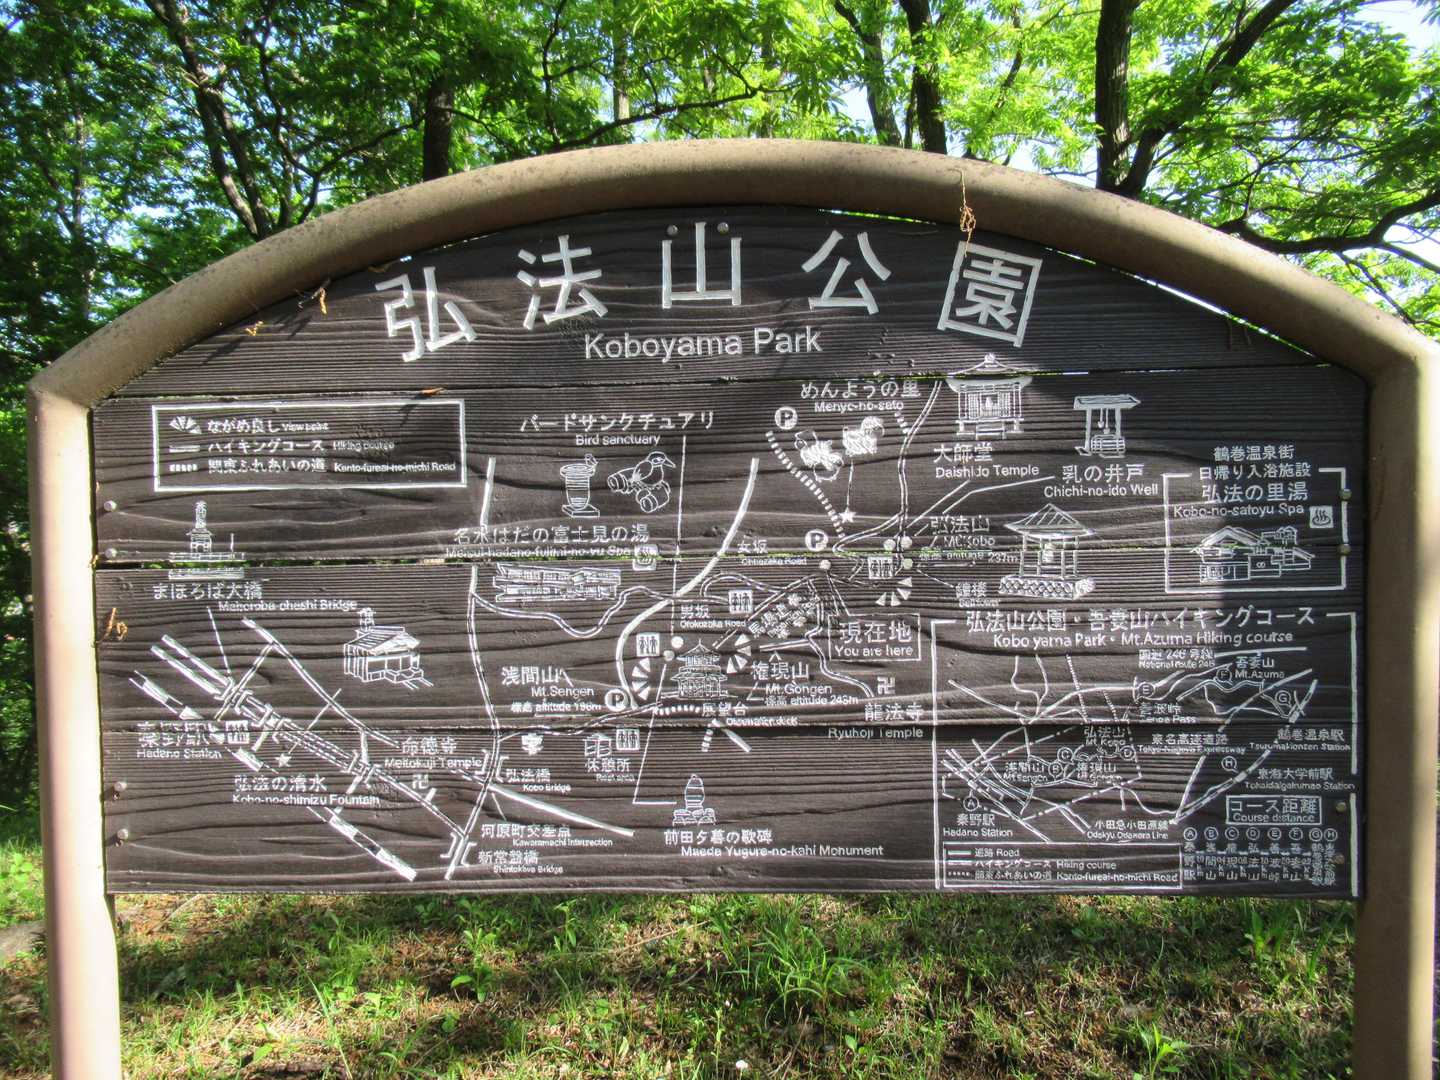 弘法山公園
Koboyama Park
ながめ良し View point
ハイキングコース Hiking course
関東ふれあいの道 Kanto-fureai-no-michi Road
バードサンクチュアリ
Bird sanctuary
めんようの里
Menyo-no-sato
P
大師堂
Daishido Temple
乳の井戸
Chichi-no-ido Well
鶴巻温泉街
日帰り入浴施設
弘法の里湯
Kobo-no-satoyu Spa
名水はだの富士見の湯
Meisui-hadano-fujimi-no-yu Spa
女坂
Onnazaka Road
P
弘法山
Mt.Kobo
標高 altitude 237m
鐘楼
Bell tower
まほろば大橋
Mahoroba-ohashi Bridge
男坂
Otokozaka Road
馬場道
現在地
You are here
浅間山へ
Mt.Sengen
標高 altitude 196m
P
権現山
Mt.Gongen
標高 altitude 245m
展望台
Observation deck
龍法寺
Ryuhoji Temple
秦野駅
Hadano Station
弘法の清水
Kobo-no-shimizu Fountain
命徳寺
Meitokuji Temple
弘法橋
Kobo Bridge
休憩所
Rest area
河原町交差点
Kawaramachi Intersection
新常盤橋
Shintokiwa Bridge
前田夕暮の歌碑
Maeda Yugure-no-kahi Monument
弘法山公園・吾妻山ハイキングコース
Koboyama Park・Mt.Azuma Hiking course
国道 246号線
National Route 246
吾妻山
Mt.Azuma
善波峠
Zenba Pass
弘法山
Mt.Kobo
東名高速道路
Tokyo-Nagoya Expressway
鶴巻温泉駅
Tsurumakionsen Station
浅間山
Mt.Sengen
権現山
Mt.Gongen
東海大学前駅
Tokaidaigakumae Station
秦野駅
Hadano Station
小田急小田原線
Odakyu Odawara Line
コース距離
Course distance
A B C D E F G H
道路 Road
ハイキングコース Hiking course
関東ふれあいの道 Kanto-fureai-no-michi Road